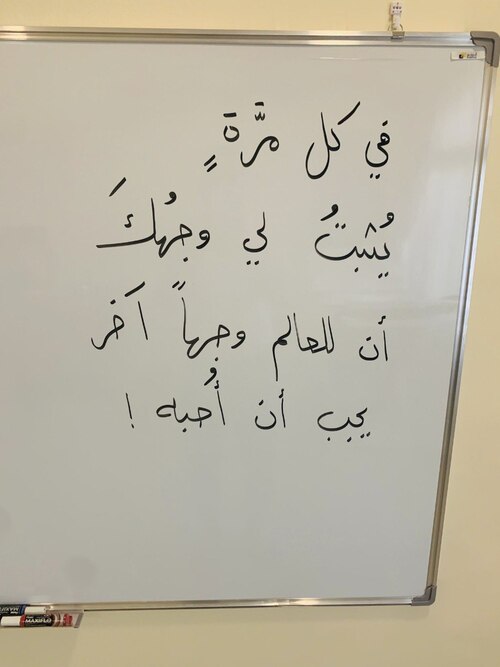 في كل مرَّةٍ
يُثبتُ لي وجهُكَ
أن للعالم وجهاً آخر
يجب أن أُحبه !